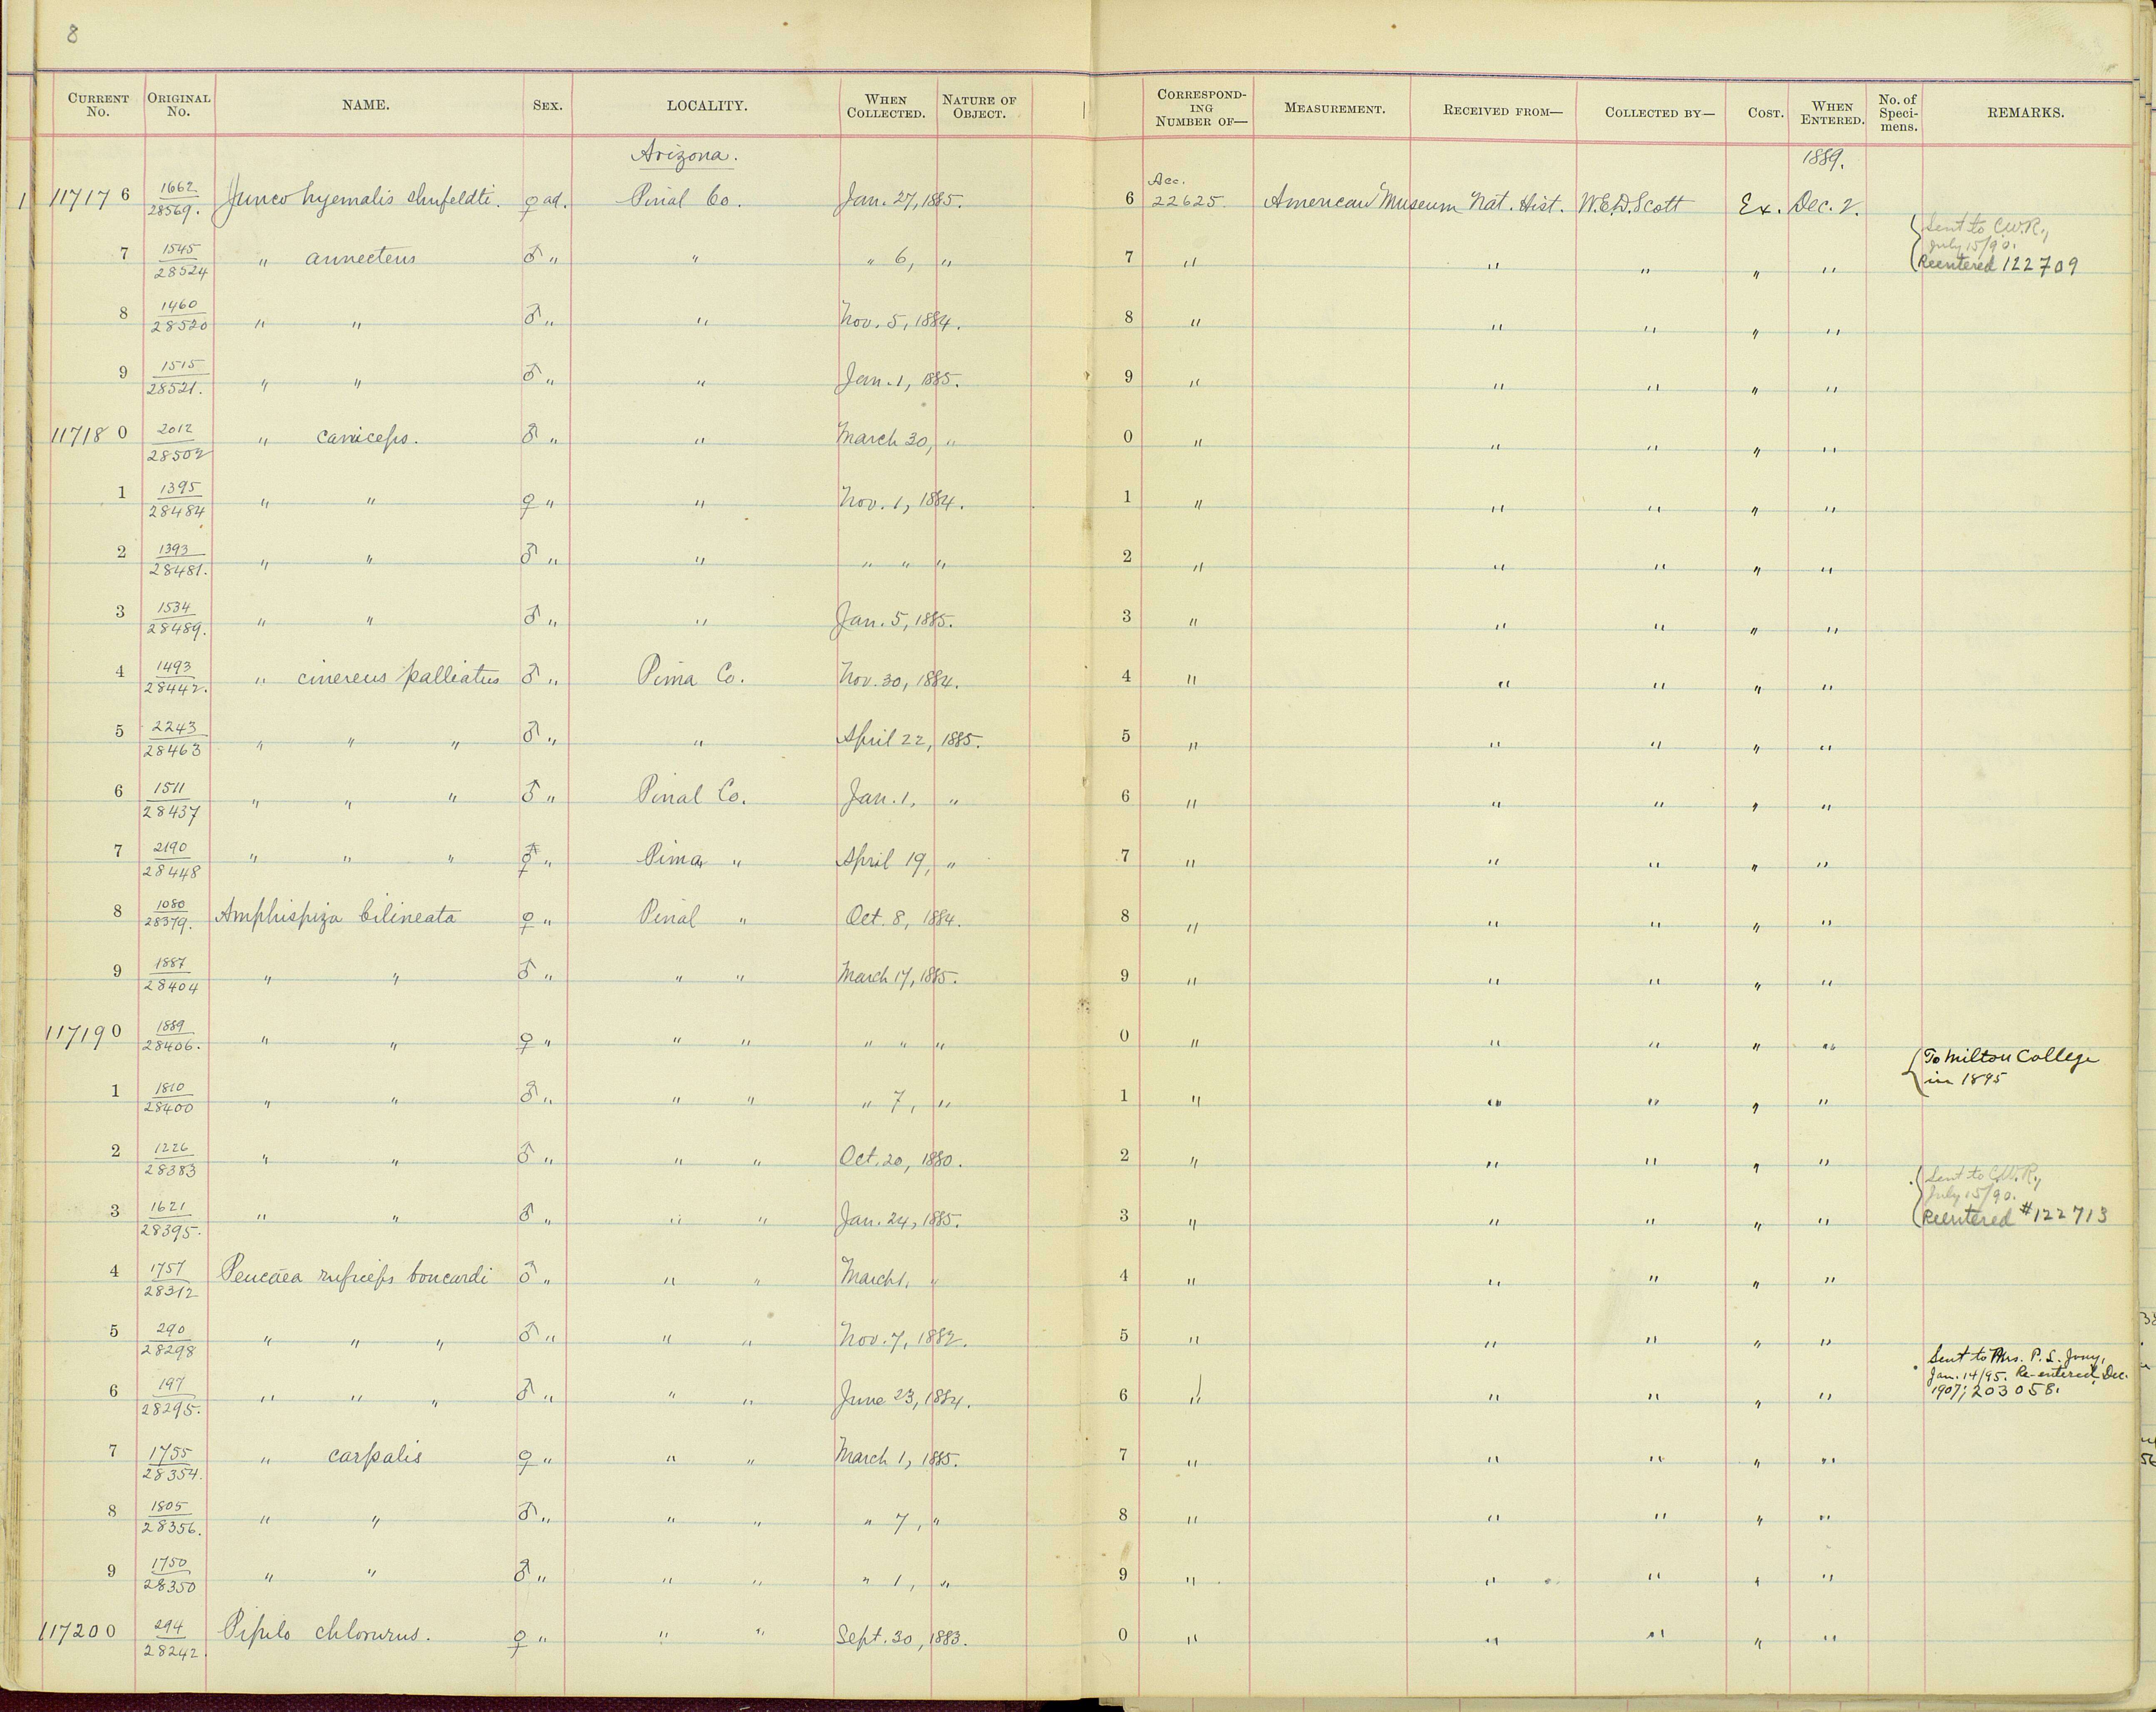 8
CURRENT No. ORIGINAL No. NAME. SEX. LOCALITY. WHEN COLLECTED. NATURE OF OBJECT. CORRESPONDING NUMBER OF— MEASUREMENT. RECEIVED FROM— COLLECTED BY— COST. WHEN ENTERED. No. of Specimens. REMARKS.
Arizona. 1889.
1 117176 1662/28569. Junco hyemalis shufeldti. ♀ ad. Pinal Co. Jan. 27, 1885. 6 Acc. 22625. American Museum Nat. Hist. W.E.D. Scott Ex. Dec. 2.
7 1545/28524 " annectens ♂ " " " 6, " 7 " " " " " Sent to C.W.R., July 15/90. Reentered 122709
8 1460/28520 " " ♂ " " Nov. 5, 1884. 8 " " " " "
9 1515/28521. " " ♂ " " Jan. 1, 1885. 9 " " " " "
117180 2012/28502 " caniceps. ♂ " " March 30, " 0 " " " " "
1 1395/28484 " " ♀ " " Nov. 1, 1884. 1 " " " " "
2 1393/28481. " " ♂ " " " " " 2 " " " " "
3 1534/28489. " " ♂ " " Jan. 5, 1885. 3 " " " " "
4 1493/28442. " cinereus palliatus ♂ " Pima Co. Nov. 30, 1884. 4 " " " " "
5 2243/28463 " " " ♂ " " April 22, 1885. 5 " " " " "
6 1511/28437 " " " ♂ " Pinal Co. Jan. 1, " 6 " " " " "
7 2190/28448 " " " " Pima " April 19, " 7 " " " " "
8 1080/28379. Amphispiza bilineata ♀ " Pinal " Oct. 8, 1884. 8 " " " " "
9 1887/28404 " " ♂ " " " March 17, 1885. 9 " " " " "
117190 1889/28406. " " ♀ " " " " " " 0 " " " " " To Milton College in 1895
1 1810/28400 " " ♂ " " " " 7, " 1 " " " " "
2 1226/28383 " " ♂ " " " Oct. 20, 1880. 2 " " " " "
3 1621/28395. " " ♂ " " " Jan. 24, 1885. 3 " " " " " Sent to C.W.R., July 15/90. Reentered #122713
4 1757/28312 Peucæa ruficeps boucardi ♂ " " " March 1, " 4 " " " " "
5 290/28298 " " " ♂ " " " Nov. 7, 1882. 5 " " " " "
6 197/28295. " " " ♂ " " " June 23, 1884. 6 " " " " " Sent to Mrs. P. L. Jan. 14/95. Re-entered, Dec. 1907; 203058.
7 1755/28354. " carpalis ♀ " " " March 1, 1885. 7 " " " " "
8 1805/28356. " " ♂ " " " " 7, " 8 " " " " "
9 1750/28350 " " ♂ " " " " 1, " 9 " " " " "
117200 294/28242. Pipilo chlorurus. ♀ " " " Sept. 30, 1883. 0 " " " " "